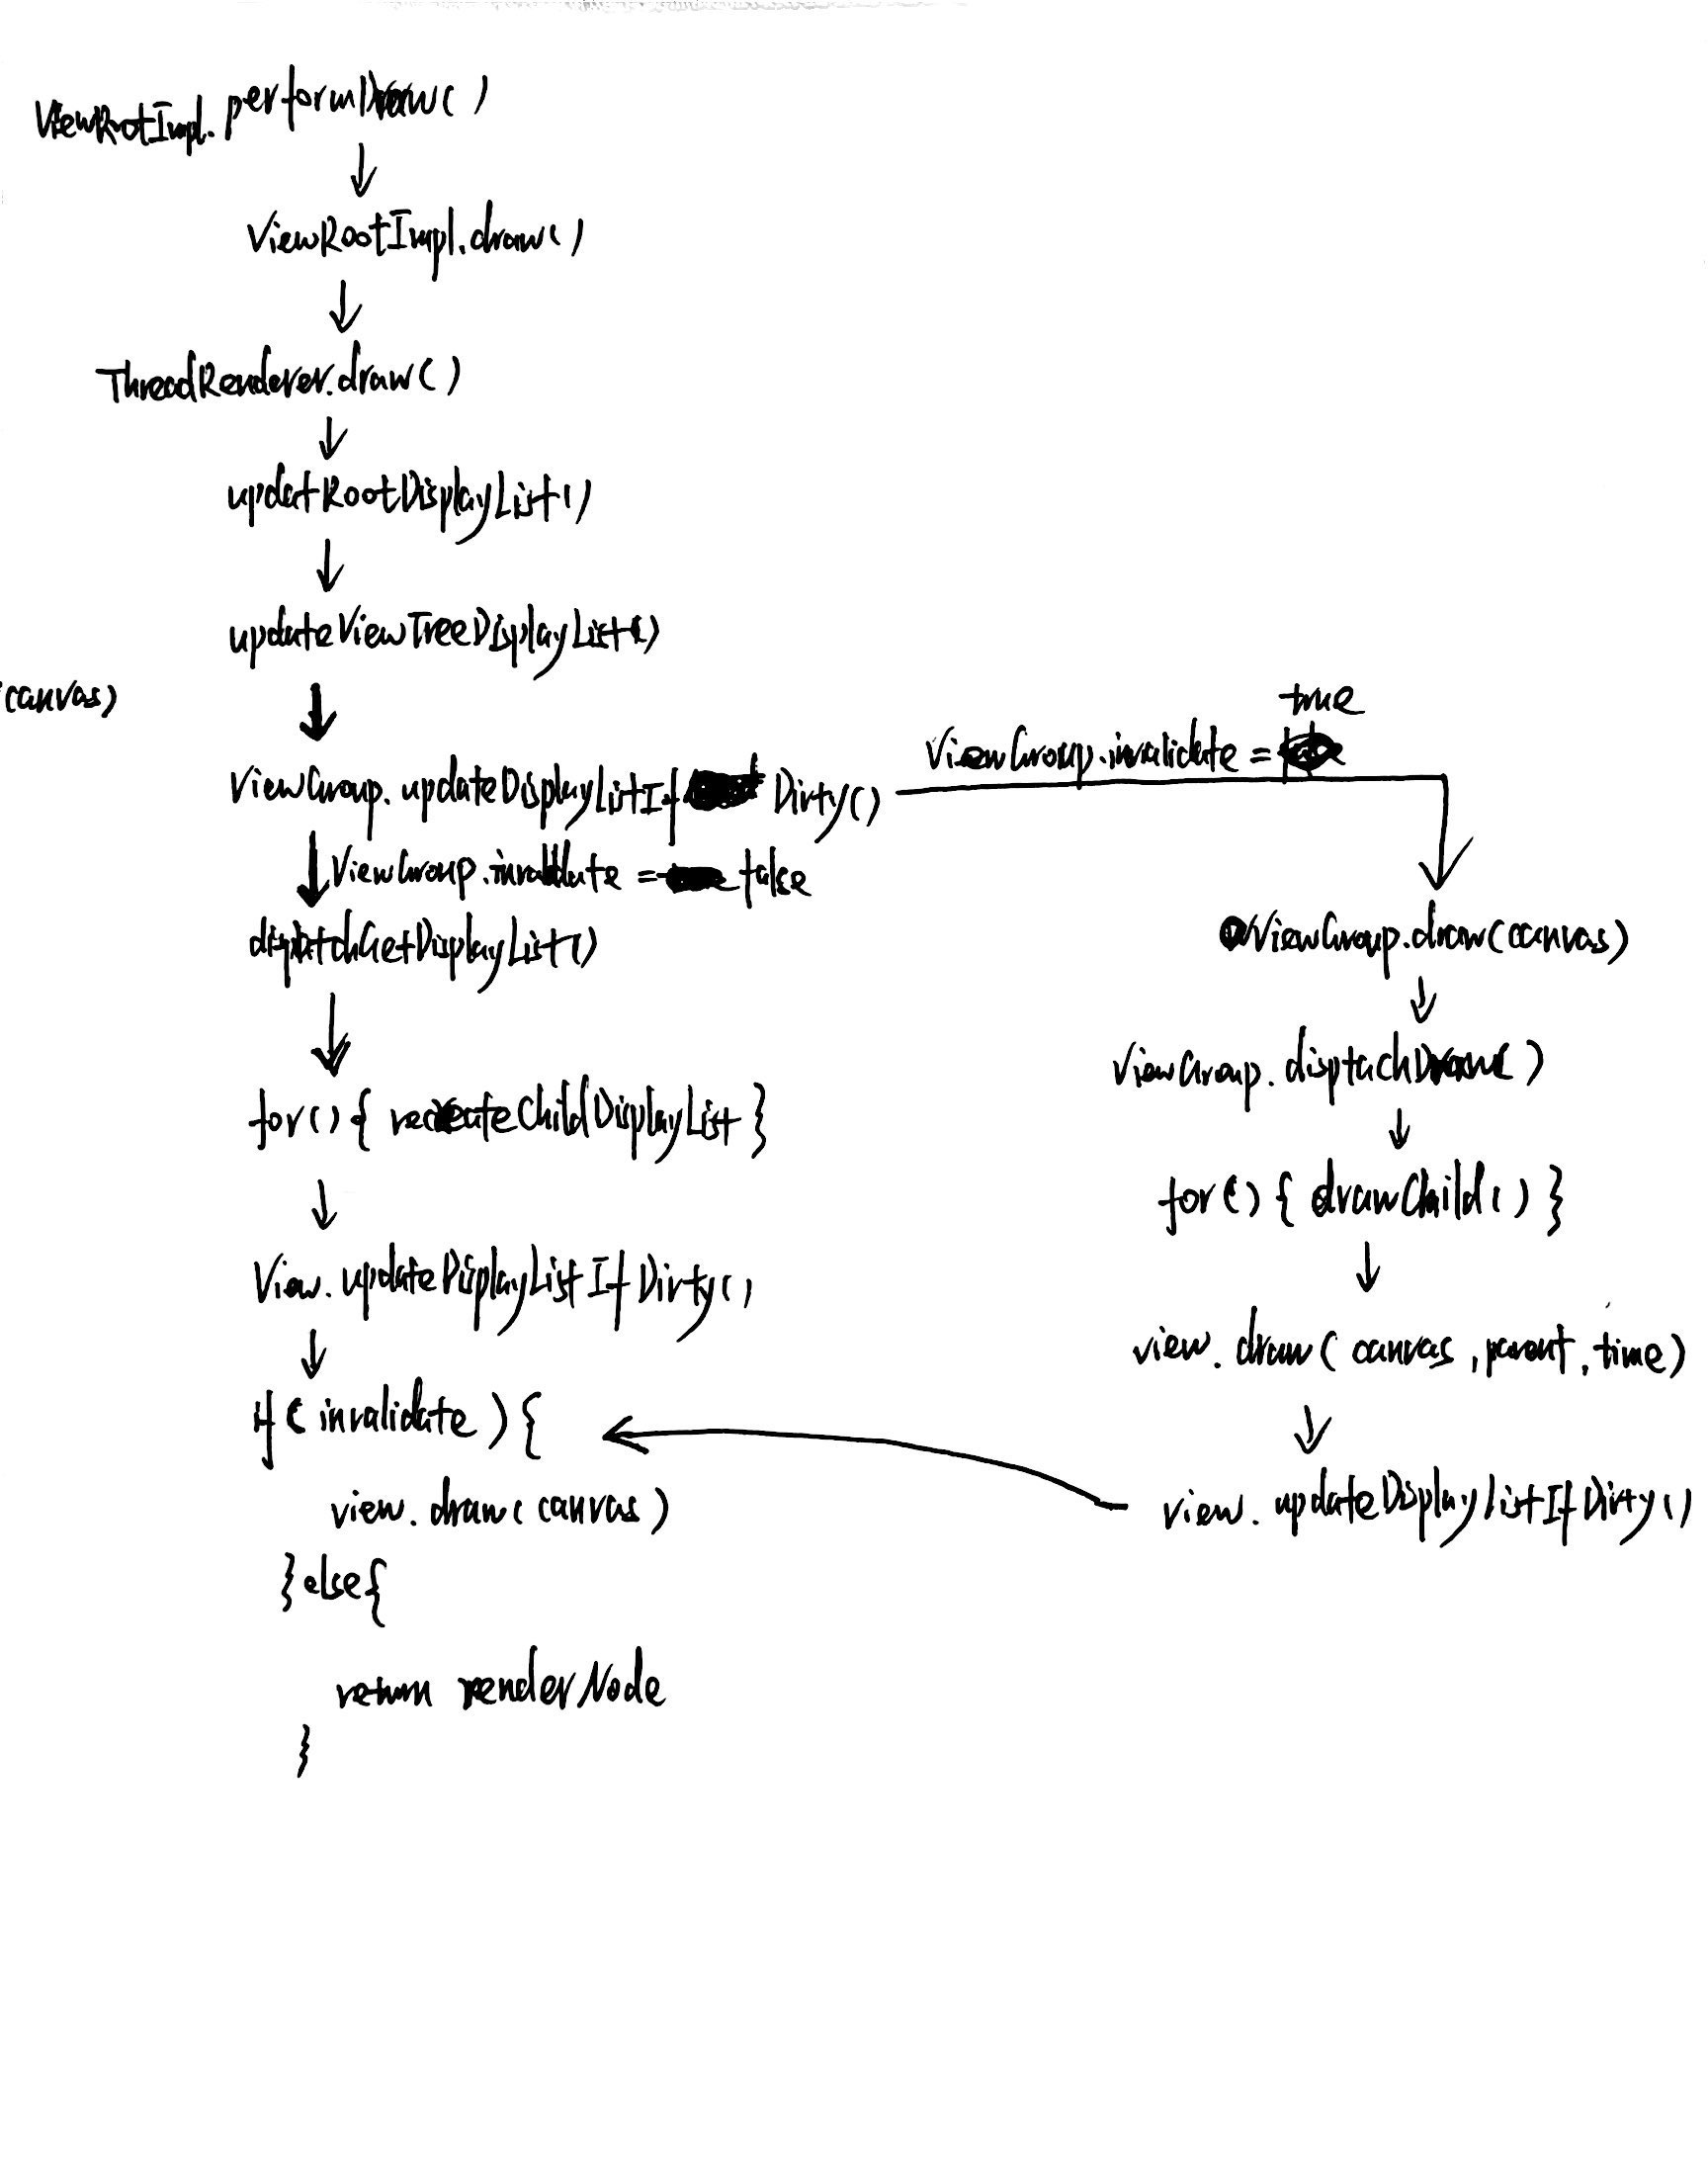 ViewRootImpl.performDraw()
ViewRootImpl.draw()
ThreadRenderer.draw()
updatRootDisplayList()
updateViewTreeDisplayList()
(canvas)
true
ViewGroup.invalidate =
ViewGroup.updateDisplayListIf Dirty()
ViewGroup.invalidate = false
dispatchGetDisplayList()
for(){ recreateChildDisplayList }
View.updateDisplayListIfDirty()
if( invalidate ){
view.draw(canvas)
}else{
return renderNode
}
ViewGroup.draw(canvas)
ViewGroup.disptachDraw()
for(){ drawChild() }
view.draw( canvas, parent, time)
view.updateDisplayListIfDirty()